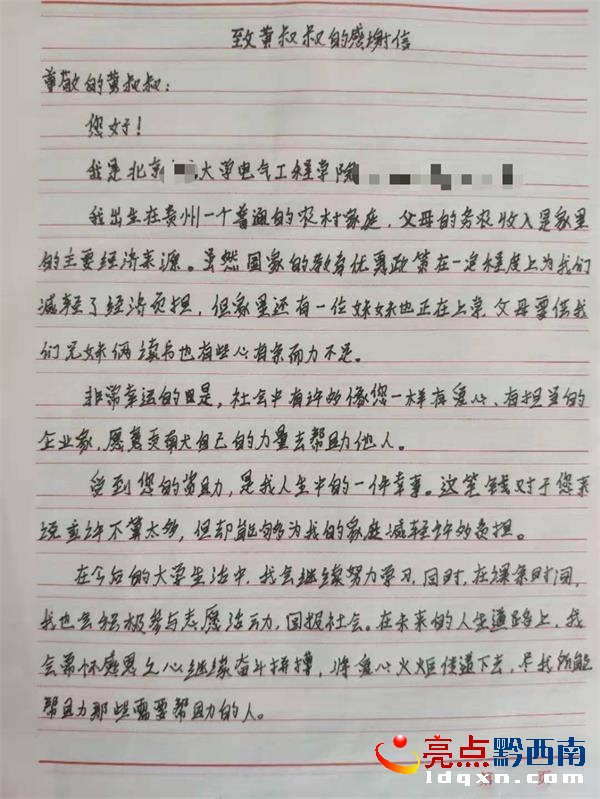 致黄叔叔的感谢信
尊敬的黄叔叔：
您好！
我是北京大学电气工程学院
我出生在贵州一个普通的农村家庭，父母的务农收入是家里
的主要经济来源。虽然国家的教育优惠政策在一定程度上为我们
减轻了经济负担，但家里还有一位妹妹也正在上学，父母要供我
们兄妹俩读书也有些心有余而力不足。
非常幸运的是，社会中有许多像您一样有爱心、有担当的
企业家，愿意贡献自己的力量去帮助他人。
受到您的资助，是我人生中的一件幸事。这笔钱对于您来
说或许不算太多，但却能够为我的家庭减轻许多负担。
在今后的大学生活中，我会继续努力学习，同时，在课余时间，
我也会积极参与志愿活动，回报社会。在未来的人生道路上，我
会常怀感恩之心继续奋斗拼搏，将爱心火炬传递下去，尽我所能
帮助那些需要帮助的人。
亮点黔西南
ldqxn.com
第 页